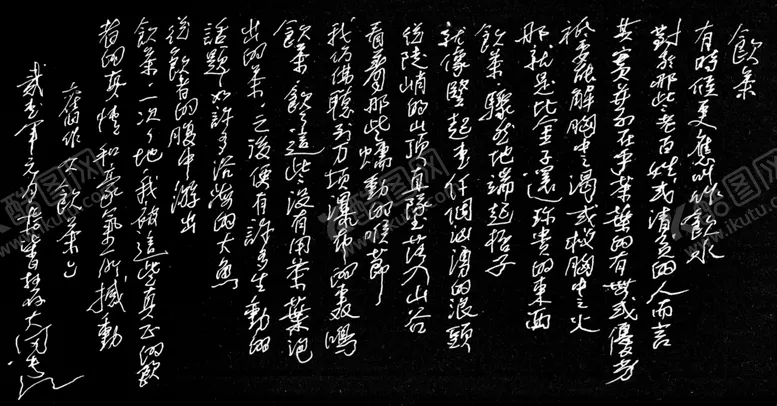 飲茶
有時候更應叫作飲水
對於那些老百姓或清貧的人而言
其實並不在乎茶葉的有無或優劣
祇要能解胸中之渴或救胸中之火
那就是比金子還珍貴的東西
飲茶 驟然地端起杯子
就像豎起一個洶湧的浪頭
從陡峭的山頂直墜落入山谷
看着那些蠕動的喉節
我彷彿聽到万頃瀑布的轟鳴
飲茶 飲這些沒有用茶葉泡
出的茶，之後便有許多生動的
話題 如許多浴海的大魚
從飲者的腹中游出
飲茶，一次次地我被這些真正的飲
者的真情和豪氣所撼動
舊作《飲茶》
元月